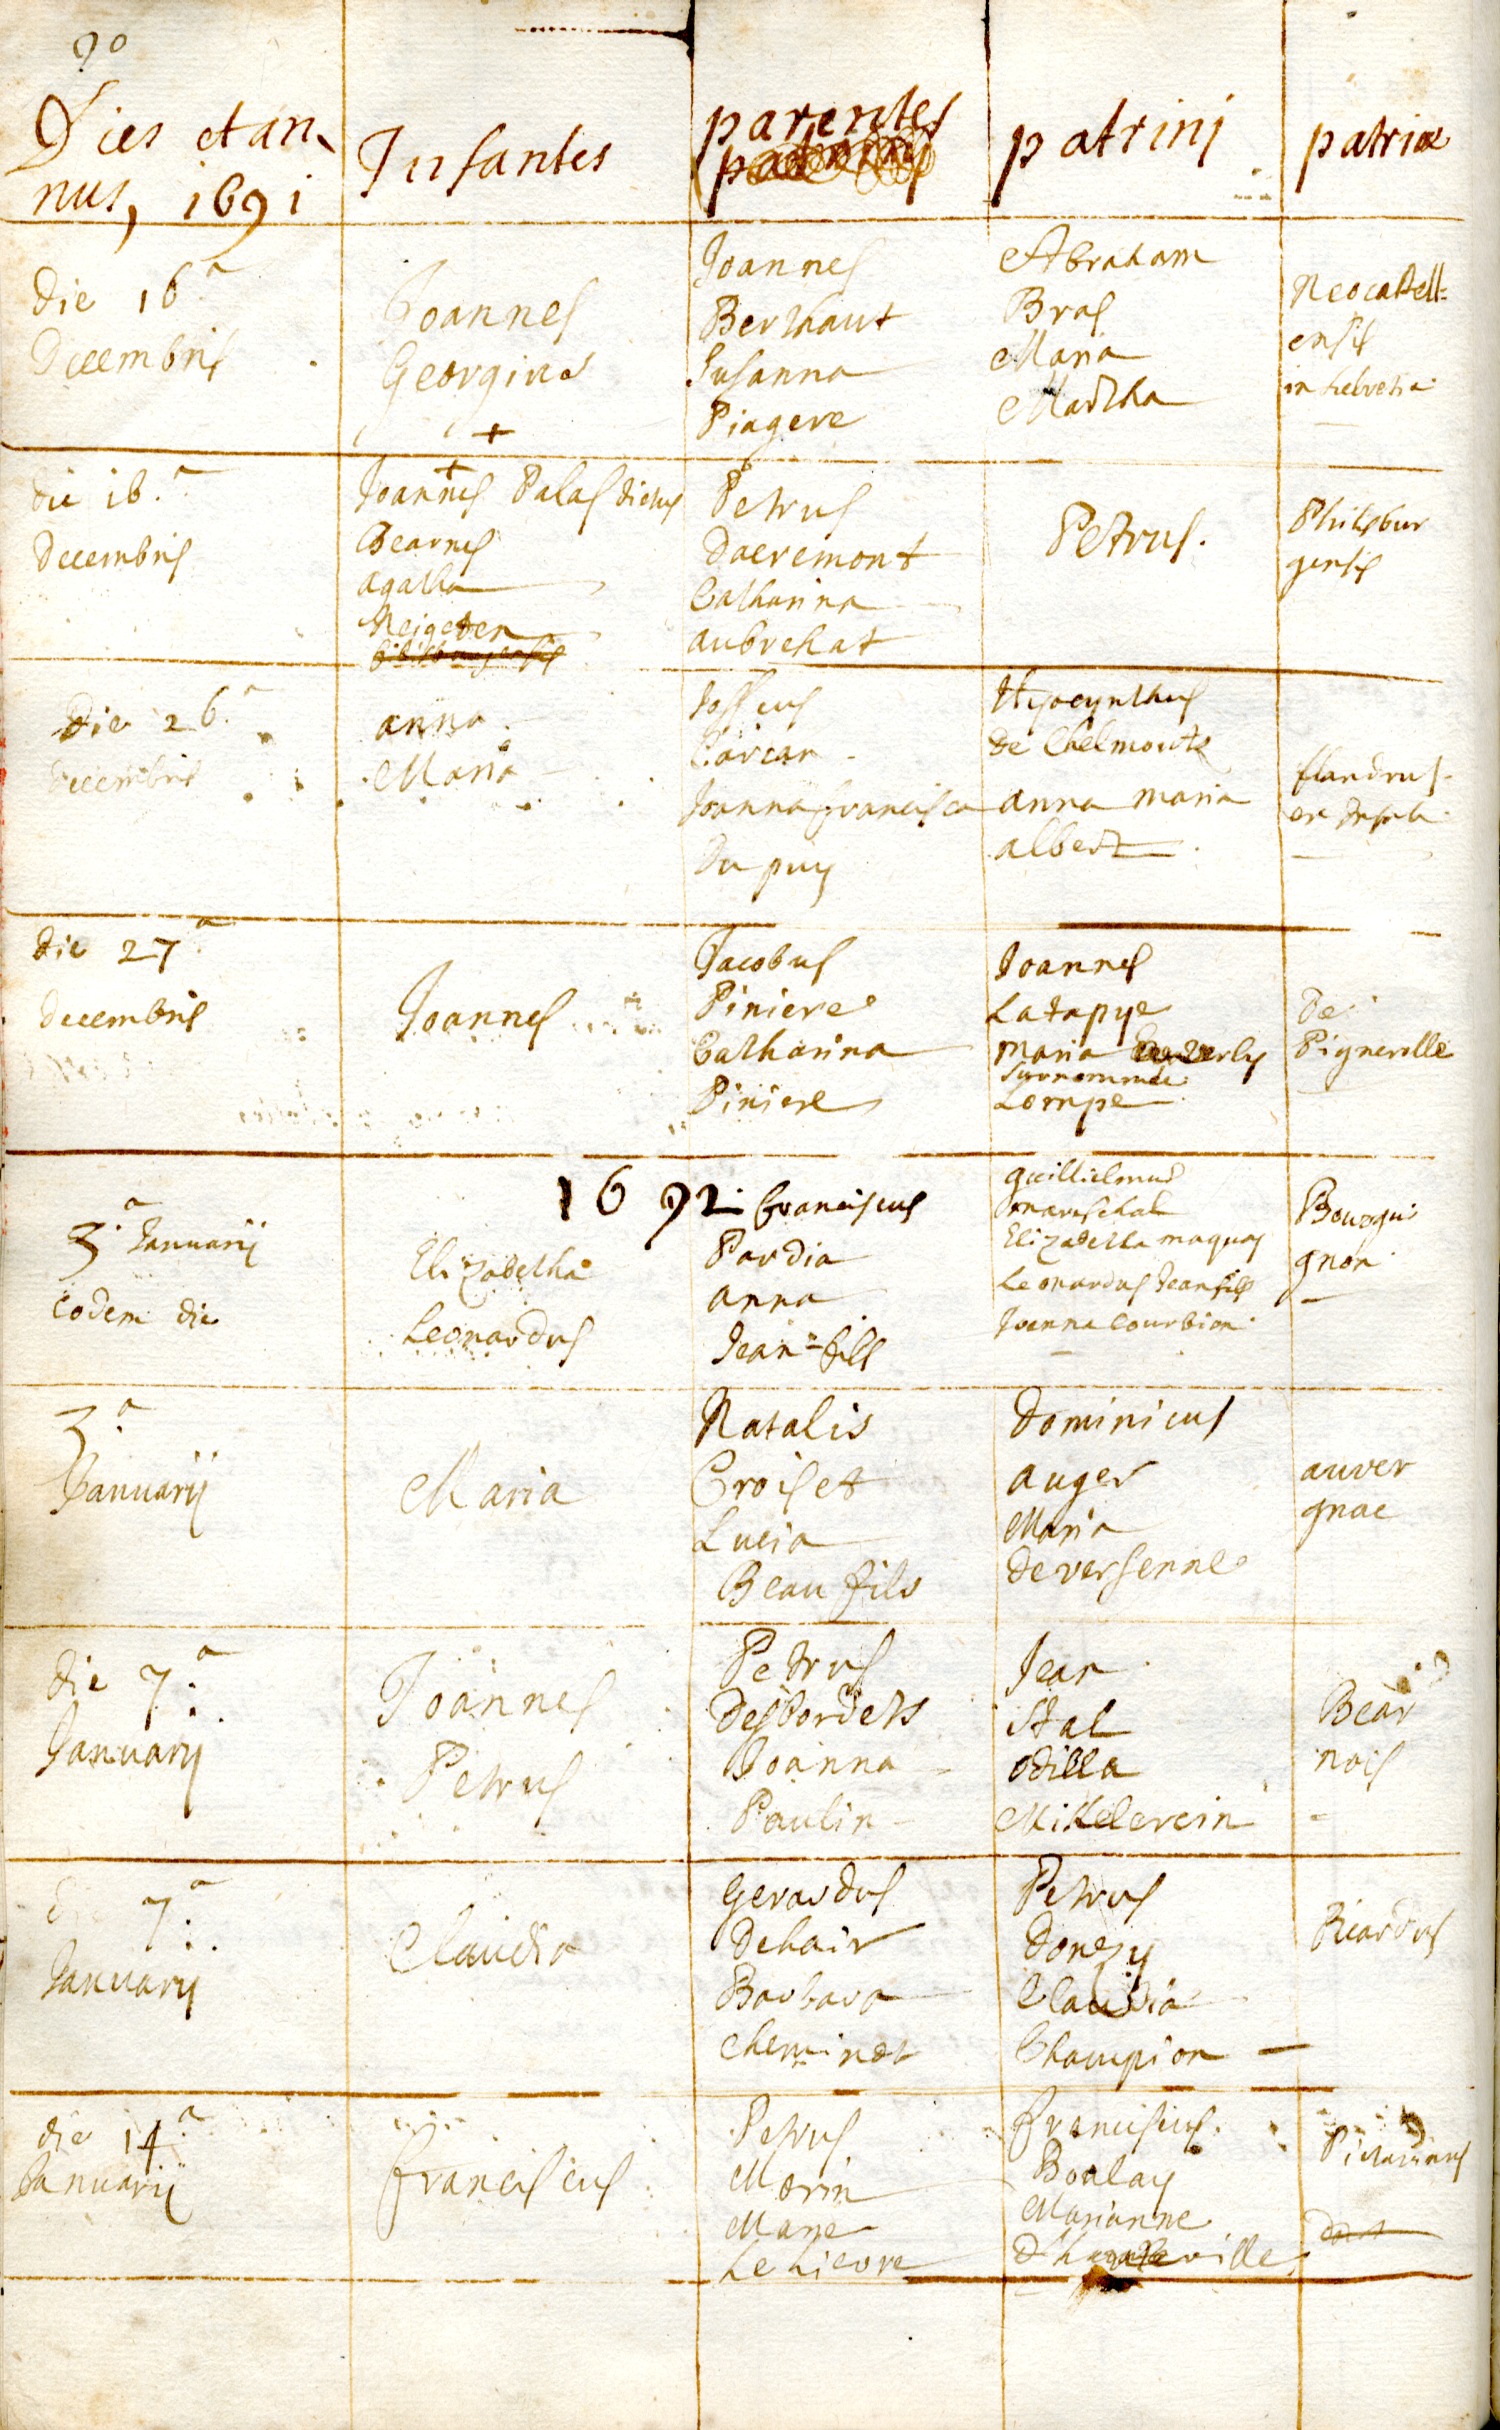 90
Dies et an
nus, 1691
Infantes
parentes
patrinj
patriæ
die 16.a
Decembris
Joannes
Georgius
Joannes
Berthaut
Susanna
Piagere
Abraham
Bras
Maria
Martha
Neocastell=
ensis
in helvetia
die 16.a
Decembris
Joannes Palas dictus
Bearnes
agatha
Neigeter
Petrus
Daeremont
Catharina
aubrehat
Petrus.
Philisbur
gensis
Die 26.a
Decembris
anna
Maria
Carcan
Joanna francisca
Du puy
Hyacynthus
De Chelmoute
anna maria
albert
flandrus
die 27.a
Decembris
Joannes
Jacobus
Piniere
Catharina
Piniere
Joannes
Latapye
Maria
surnommée
Lompe
De
Pignerolle
1692
3.a Januarij
eodem die
Elizabetha
Leonardus
franciscus
Pardia
anna
Jean=fils
guillielmus
mareschal
Elizabetha maquay
Leonardus Jeanfils
Joanna Courbion
Bourgui
gnon
3.a
Januarij
Maria
Natalis
Croiset
Lucia
Beau fils
Dominicus
auger
Maria
de versenne
auver
gnac
die 7.a
Januarij
Joannes
Petrus
Petrus
Desbordets
Joanna
Paulin
Jean
Stal
odilla
Mittelerein
Bear
nois
7.a
Januarij
Claudia
Gerardus
Dehair
Barbara
Cheminot
Petrus
Donezy
Claudia
Champion
Picardus
die 14.a
Januarij
franciscus
Petrus
Morin
Marie
Le lievre
franciscus.
Boulay
Marianne
Pictavinus